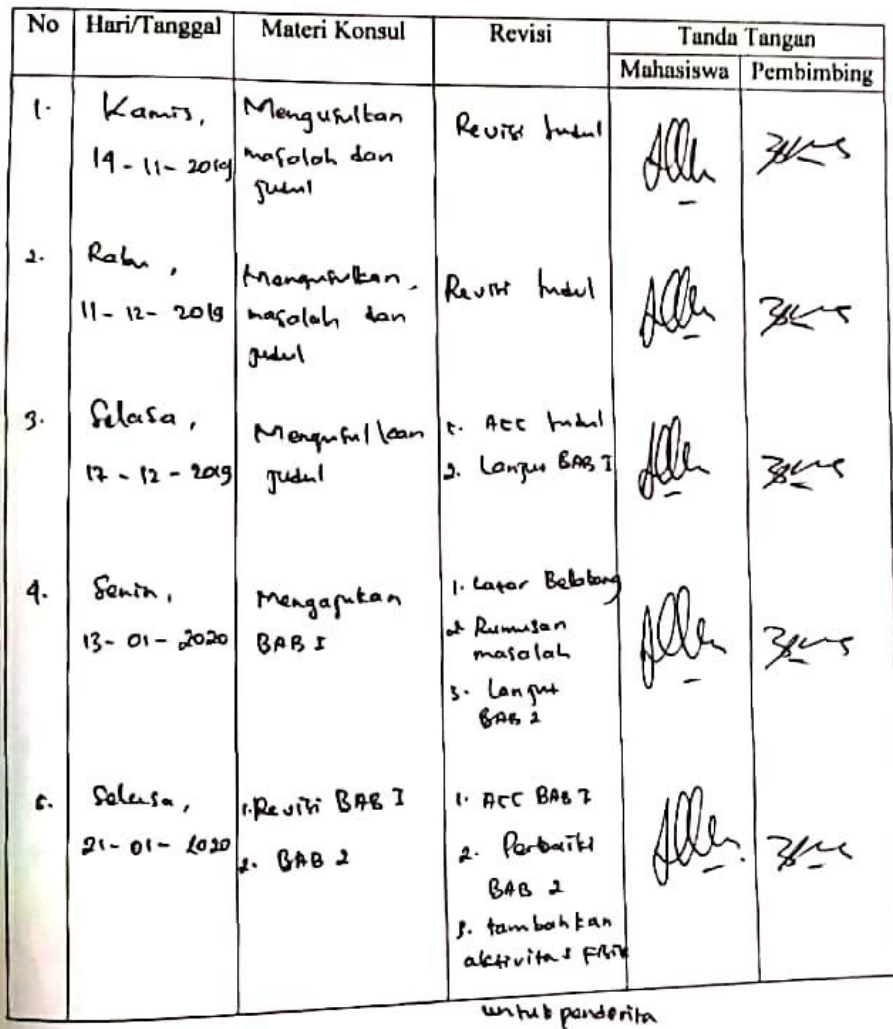 No Hari/Tanggal Materi Konsul Revisi Tanda Tangan
Mahasiswa Pembimbing
1. Kamis,
14-11-2019
Mengusulkan
masalah dan
judul
Revisi Judul
2. Rabu,
11-12-2019
Mengusulkan,
masalah dan
judul
Revisi Judul
3. Selasa,
17-12-2019
Mengusulkan
judul
1. ACC Judul
2. Lanjut BAB I
4. Senin,
13-01-2020
Mengajukan
BAB I
1. Latar Belakang
2. Rumusan
masalah
3. Lanjut
BAB 2
5. Selasa,
21-01-2020
1. Revisi BAB I
2. BAB 2
1. ACC BAB I
2. Perbaiki
BAB 2
3. tambahkan
aktivitas Fisik
untuk penderita